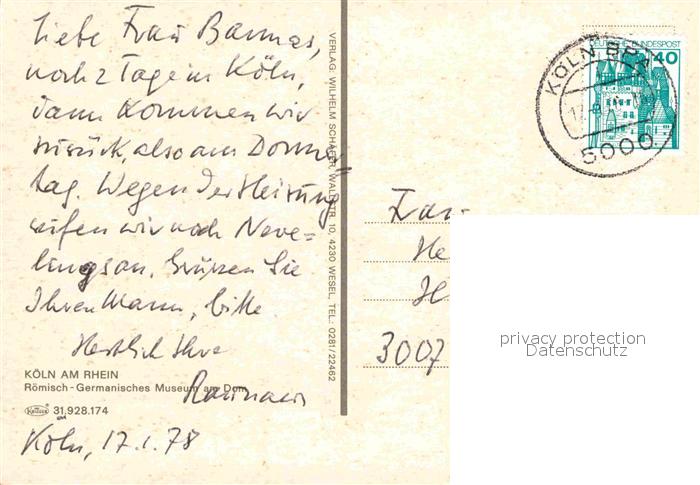 Liebe Frau Barmas,
noch 2 Tage in Köln,
dann kommen wir
zurück, also am Donners=
tag. Wegen der Heizung
rufen wir noch Neve=
lings an. Grüssen Sie
Ihren Mann, bitte
Herzlich Ihre
KÖLN AM RHEIN
Römisch-Germanisches Museum am Dom
Krüger 31.928.174
Köln, 17.1.78
VERLAG: WILHELM SCHÄFER, WALLSTR. 10, 4230 WESEL, TEL.: 0281/22462
DEUTSCHE BUNDESPOST
40
KÖLN BPA
5000
Frau
He
H
3007
privacy protection
Datenschutz